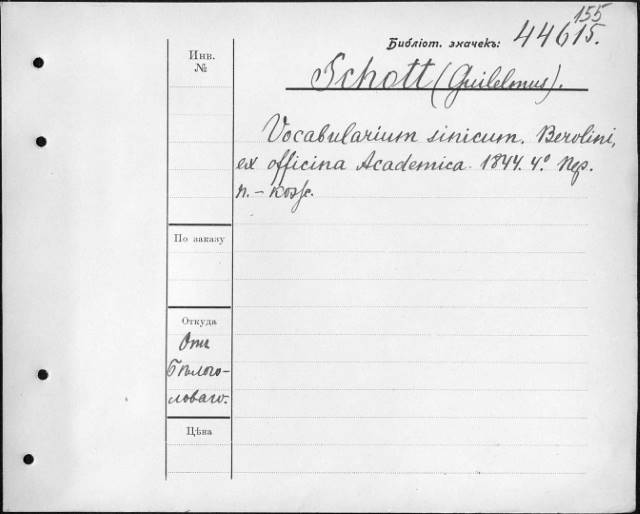 155
Библіот. значекъ: 44615.
Инв.
№
Schott (Guilelmus).
Vocabularium sinicum. Berolini,
ex officina Academica. 1844. 4° Пер.
п. – кож.
По заказу
Откуда
Отъ
Бѣлого-
ловаго.
Цѣна